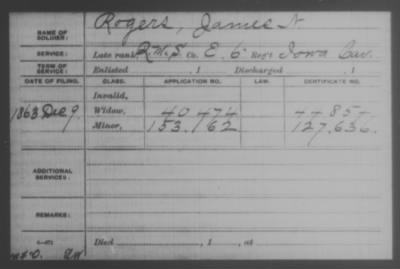 NAME OF SOLDIER: Rogers, James N.
SERVICE: Late rank, R.M.S Co. E, 6 Reg't Iowa Cav.
TERM OF SERVICE: Enlisted , 1 Discharged , 1
DATE OF FILING. CLASS. APPLICATION NO. LAW. CERTIFICATE NO.
Invalid,
1863 Dec 9. Widow, 40 474
Minor, 153.162 127.636.
ADDITIONAL SERVICES:
REMARKS:
Died , 1 , at